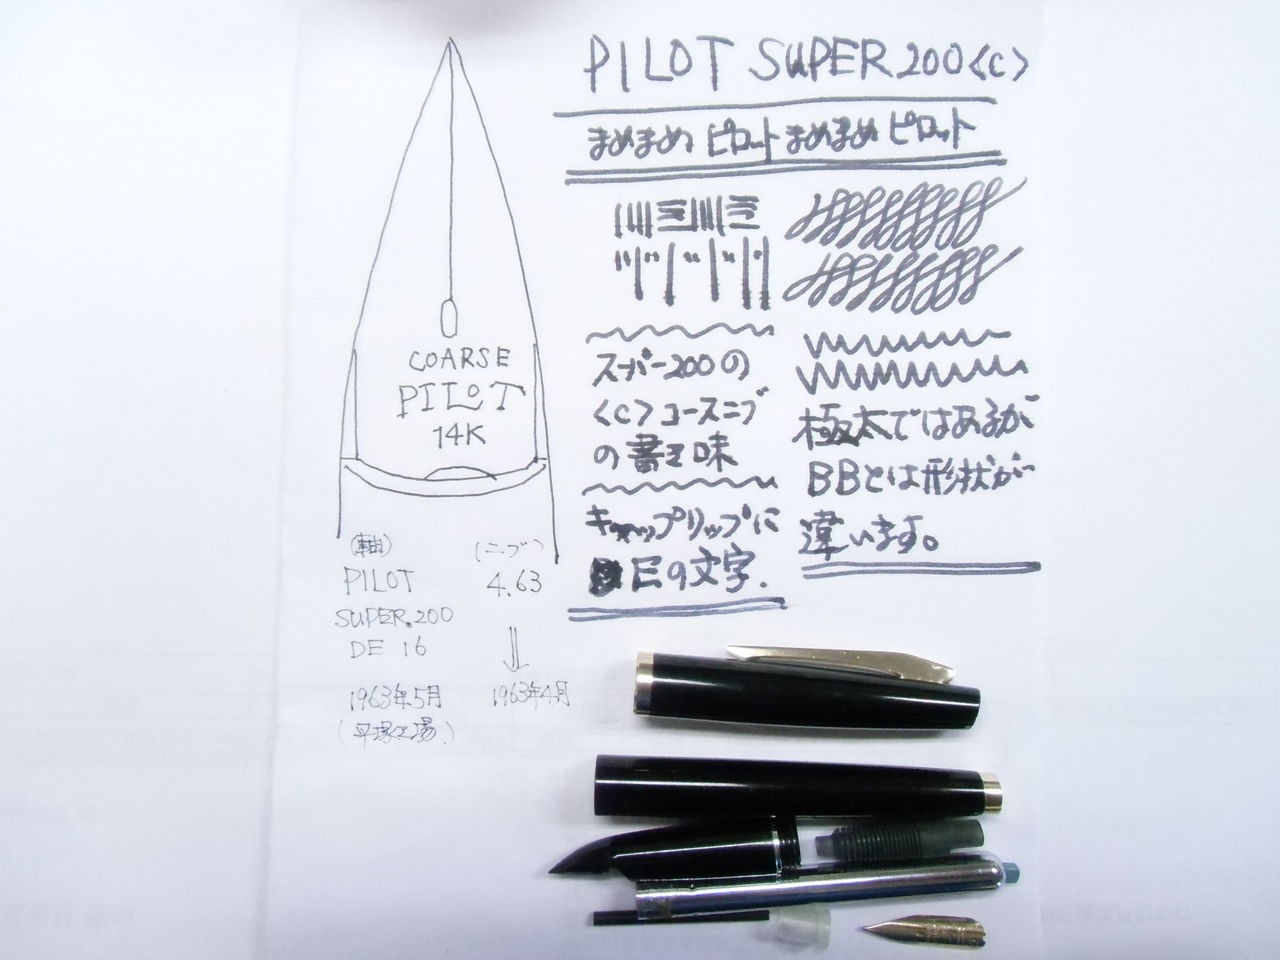 PILOT SUPER 200<C>
まめまめ ピロットまめまめ ピロット
COARSE
PILOT
14K
スーパー200の
<C>コースニブ
の書き味
キャップリップに
Eの文字.
極太ではあるが
BBとは形状が
違います。
(軸)
PILOT
SUPER.200
DE 16
1963年5月
(平塚工場.)
(ニブ)
4.63
1963年4月